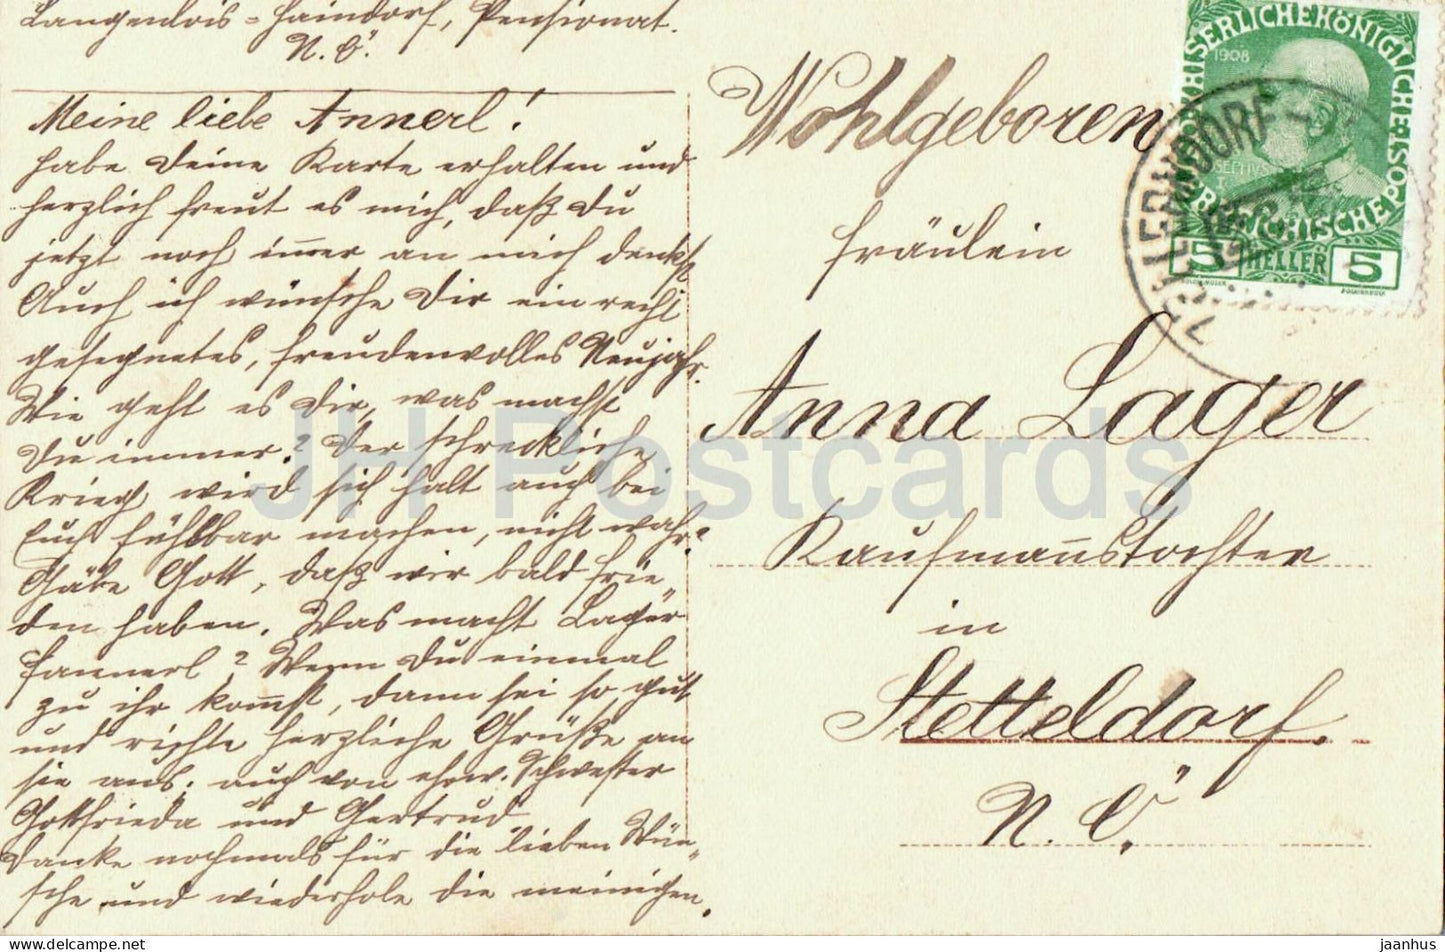 Langenlois-Haindorf, Pensionat.
N. Ö.
Meine liebe Annerl!
habe Deine Karte erhalten und
herzlich freut es mich, daß Du
jetzt noch immer an mich denkst.
Auch ich wünsche Dir ein recht
gesegnetes, freudenvolles Neujahr.
Wie geht es Dir, was machst
Du immer? Der schreckliche
Krieg wird sich halt auch bei
Euch fühlbar machen, nicht wahr?
Gäbe Gott, daß wir bald Frie-
den haben. Was macht Lager
Fannerl? Wenn Du einmal
zu ihr kommst, dann sei so gut
und richte herzliche Grüße an
sie aus, auch von ehrw. Schwester
Gottfrieda und Gertrud
Danke nochmals für die lieben Wün-
sche und wiederhole die meinigen.
Wohlgeboren
Fräulein
Anna Lager
Kaufmannstochter
in
Stetteldorf.
N. Ö.
KAISERLICHE KÖNIGLICHE
ÖSTERREICHISCHE POST
1908
5 HELLER 5
JH Postcards
www.delcampe.net
jaanhus